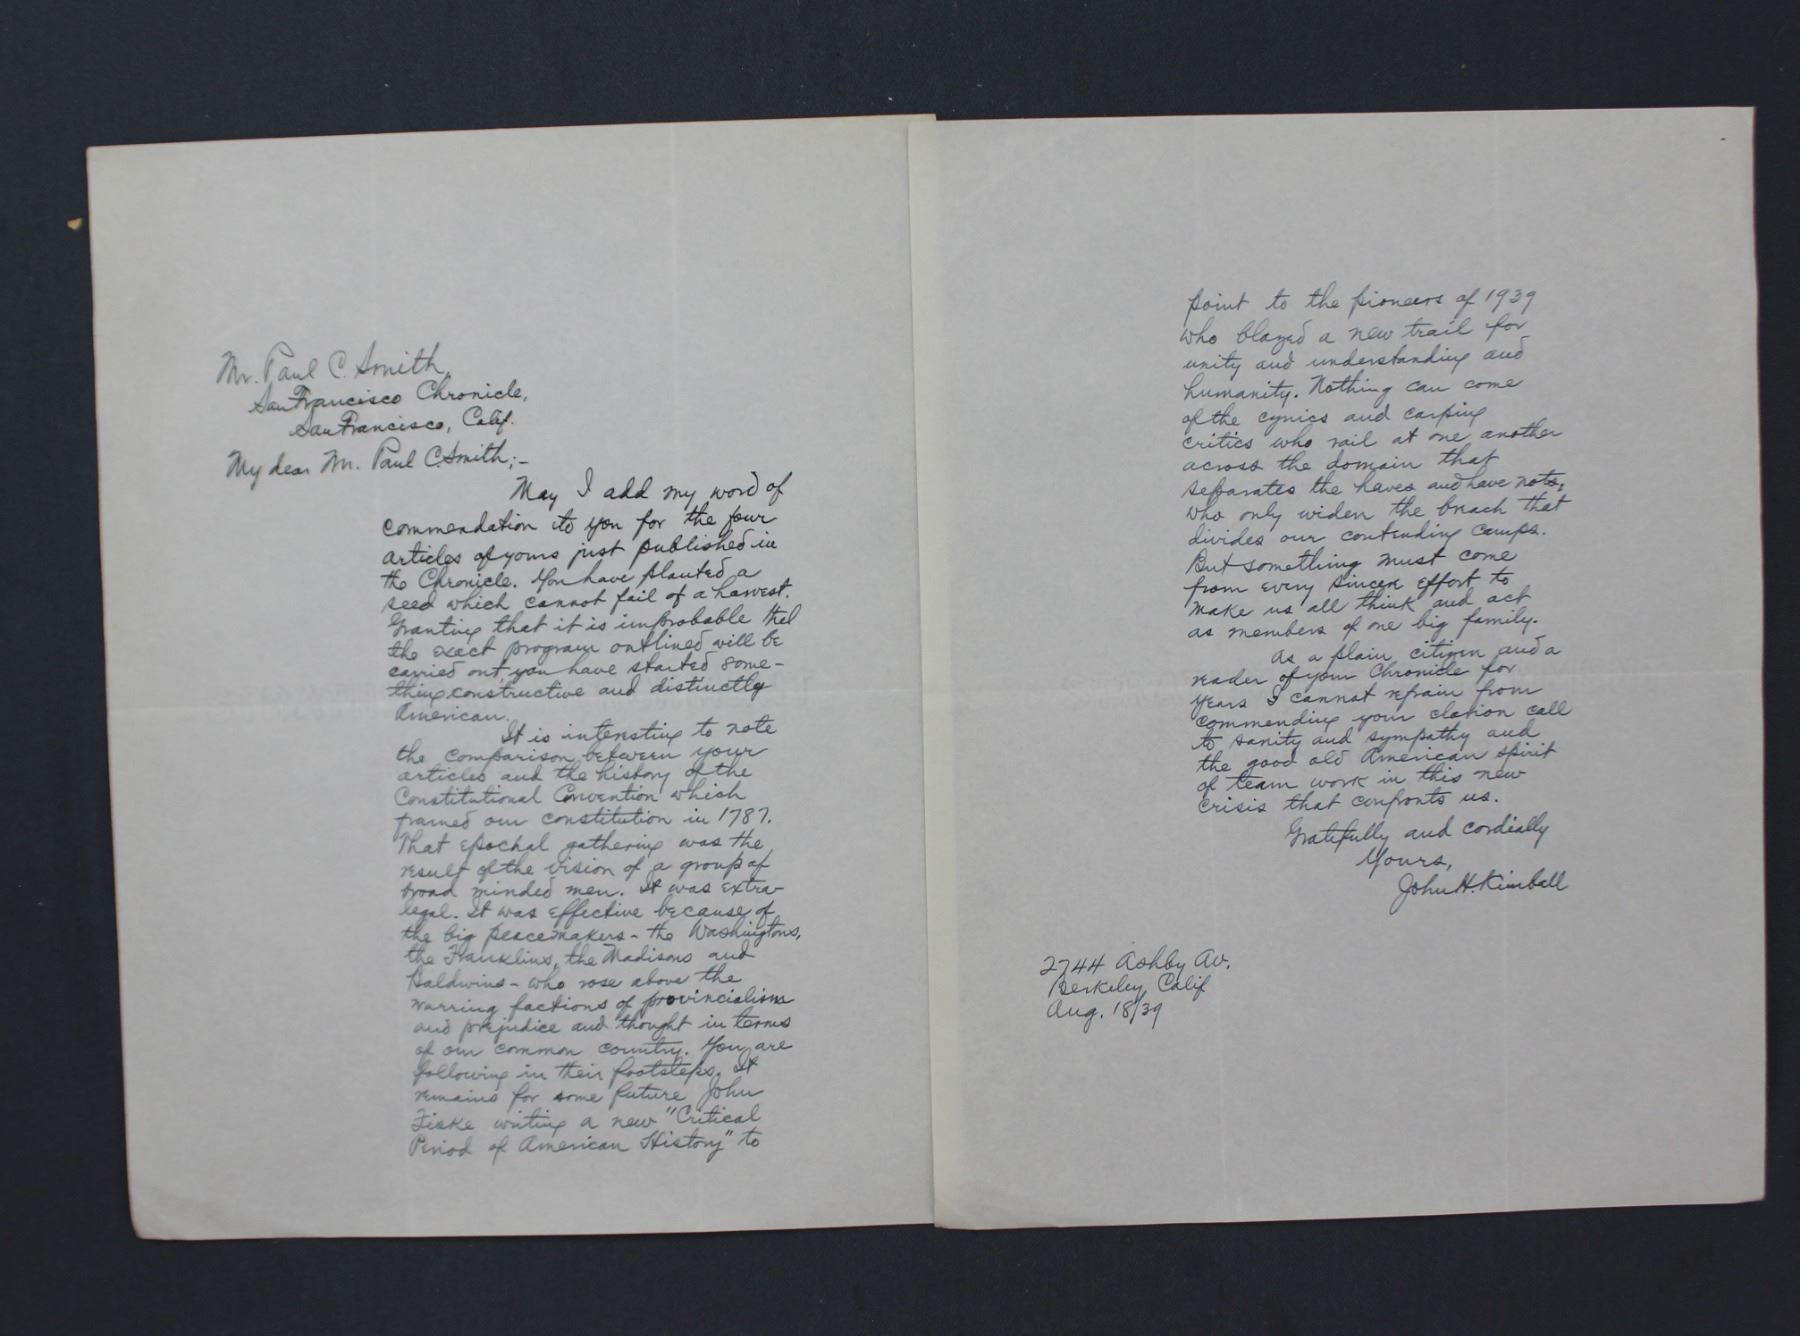 Mr. Paul C. Smith,
San Francisco Chronicle,
San Francisco, Calif.
My dear Mr. Paul C. Smith;-
May I add my word of
commendation to you for the four
articles of yours just published in
the Chronicle. You have planted a
seed which cannot fail of a harvest.
Granting that it is improbable that
the exact program outlined will be
carried out, you have started some-
thing constructive and distinctly
American.
It is interesting to note
the comparison between your
articles and the history of the
Constitutional Convention which
framed our constitution in 1787.
That epochal gathering was the
result of the vision of a group of
broad minded men. It was extra-
legal. It was effective because of
the big peacemakers - the Washingtons,
the Franklins, the Madisons and
Baldwins - who rose above the
warring factions of provincialism
and prejudice and thought in terms
of our common country. You are
following in their footsteps. It
remains for some future John
Fiske writing a new "Critical
Period of American History" to
point to the pioneers of 1939
who blazed a new trail for
unity and understanding and
humanity. Nothing can come
of the cynics and carping
critics who rail at one another
across the domain that
separates the haves and have nots,
who only widen the breach that
divides our contending camps.
But something must come
from every sincere effort to
make us all think and act
as members of one big family.
As a plain citizen and a
reader of your Chronicle for
years I cannot refrain from
commending your clarion call
to sanity and sympathy and
the good old American spirit
of team work in this new
crisis that confronts us.
Gratefully and cordially
Yours,
John H. Kimball
2744 Ashby Av.
Berkeley, Calif
Aug. 18/39